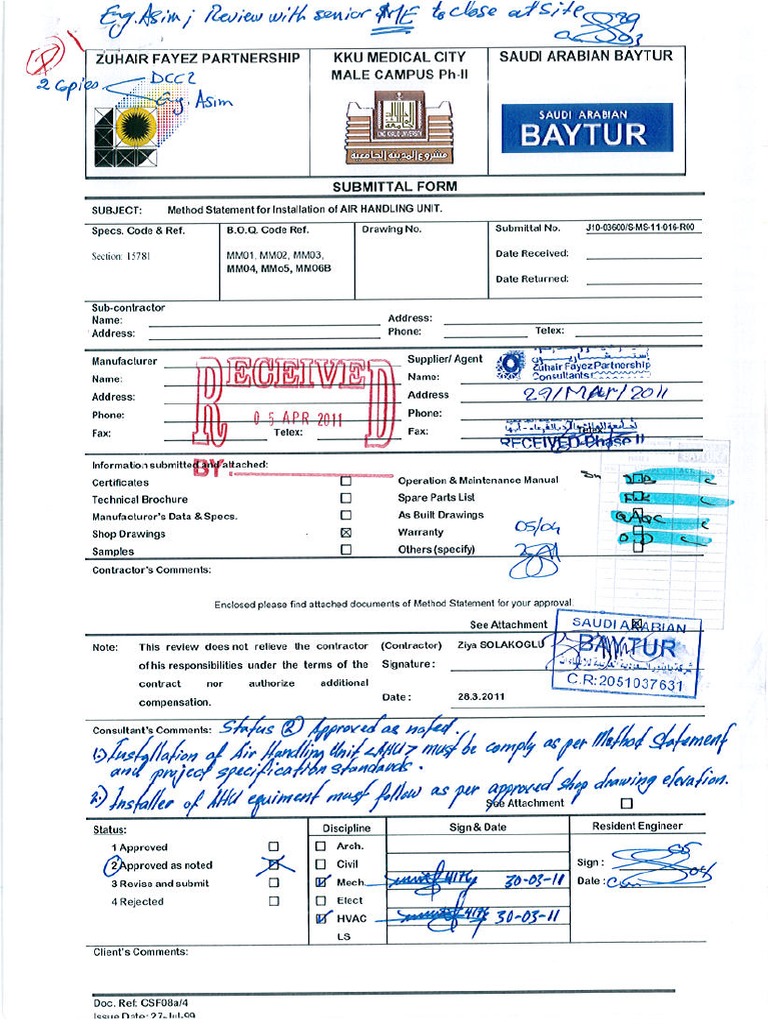 Eng. Asim ; Review with senior ME to close at site
ZUHAIR FAYEZ PARTNERSHIP
KKU MEDICAL CITY
MALE CAMPUS Ph-II
SAUDI ARABIAN BAYTUR
2 Copies
DCC2
Eng. Asim
مشروع المدينة الجامعية
SAUDI ARABIAN
BAYTUR
SUBMITTAL FORM
SUBJECT: Method Statement for Installation of AIR HANDLING UNIT.
Specs. Code & Ref. B.O.Q. Code Ref. Drawing No. Submittal No. J10-03600/S-MS-11-016-R00
Section: 15781 MM01, MM02, MM03,
MM04, MMo5, MM06B
Date Received:
Date Returned:
Sub-contractor
Name: Address:
Address: Phone: Telex:
Manufacturer Supplier/ Agent
Name: Name:
Address: Address
Phone: Phone:
Fax: Telex: Fax: Telex:
RECEIVED
05 APR 2011
BY:
Zuhair Fayez Partnership
Consultants
29/Mar/2011
RECEIVED-Phase II
Information submitted and attached:
Certificates Operation & Maintenance Manual
Technical Brochure Spare Parts List
Manufacturer's Data & Specs. As Built Drawings
Shop Drawings ☒ Warranty
Samples Others (specify)
05/04
Contractor's Comments:
Enclosed please find attached documents of Method Statement for your approval.
See Attachment ☒
Note: This review does not relieve the contractor (Contractor) Ziya SOLAKOGLU
of his responsibilities under the terms of the Signature :
contract nor authorize additional
compensation. Date : 28.3.2011
SAUDI ARABIAN
BAYTUR
C.R:2051037631
Consultant's Comments: Status ② Approved as noted.
1.) Installation of Air Handling Unit <AHU> must be comply as per Method Statement
and project specification standards.
2.) Installer of AHU equiment must follow as per approved shop drawing elevation.
See Attachment
Status: Discipline Sign & Date Resident Engineer
1 Approved Arch.
2 Approved as noted Civil Sign :
3 Revise and submit Mech. 30-03-11 Date :
4 Rejected Elect
HVAC 30-03-11
LS
Client's Comments:
Doc. Ref: CSF08a/4
Issue Date: 27-Jul-99